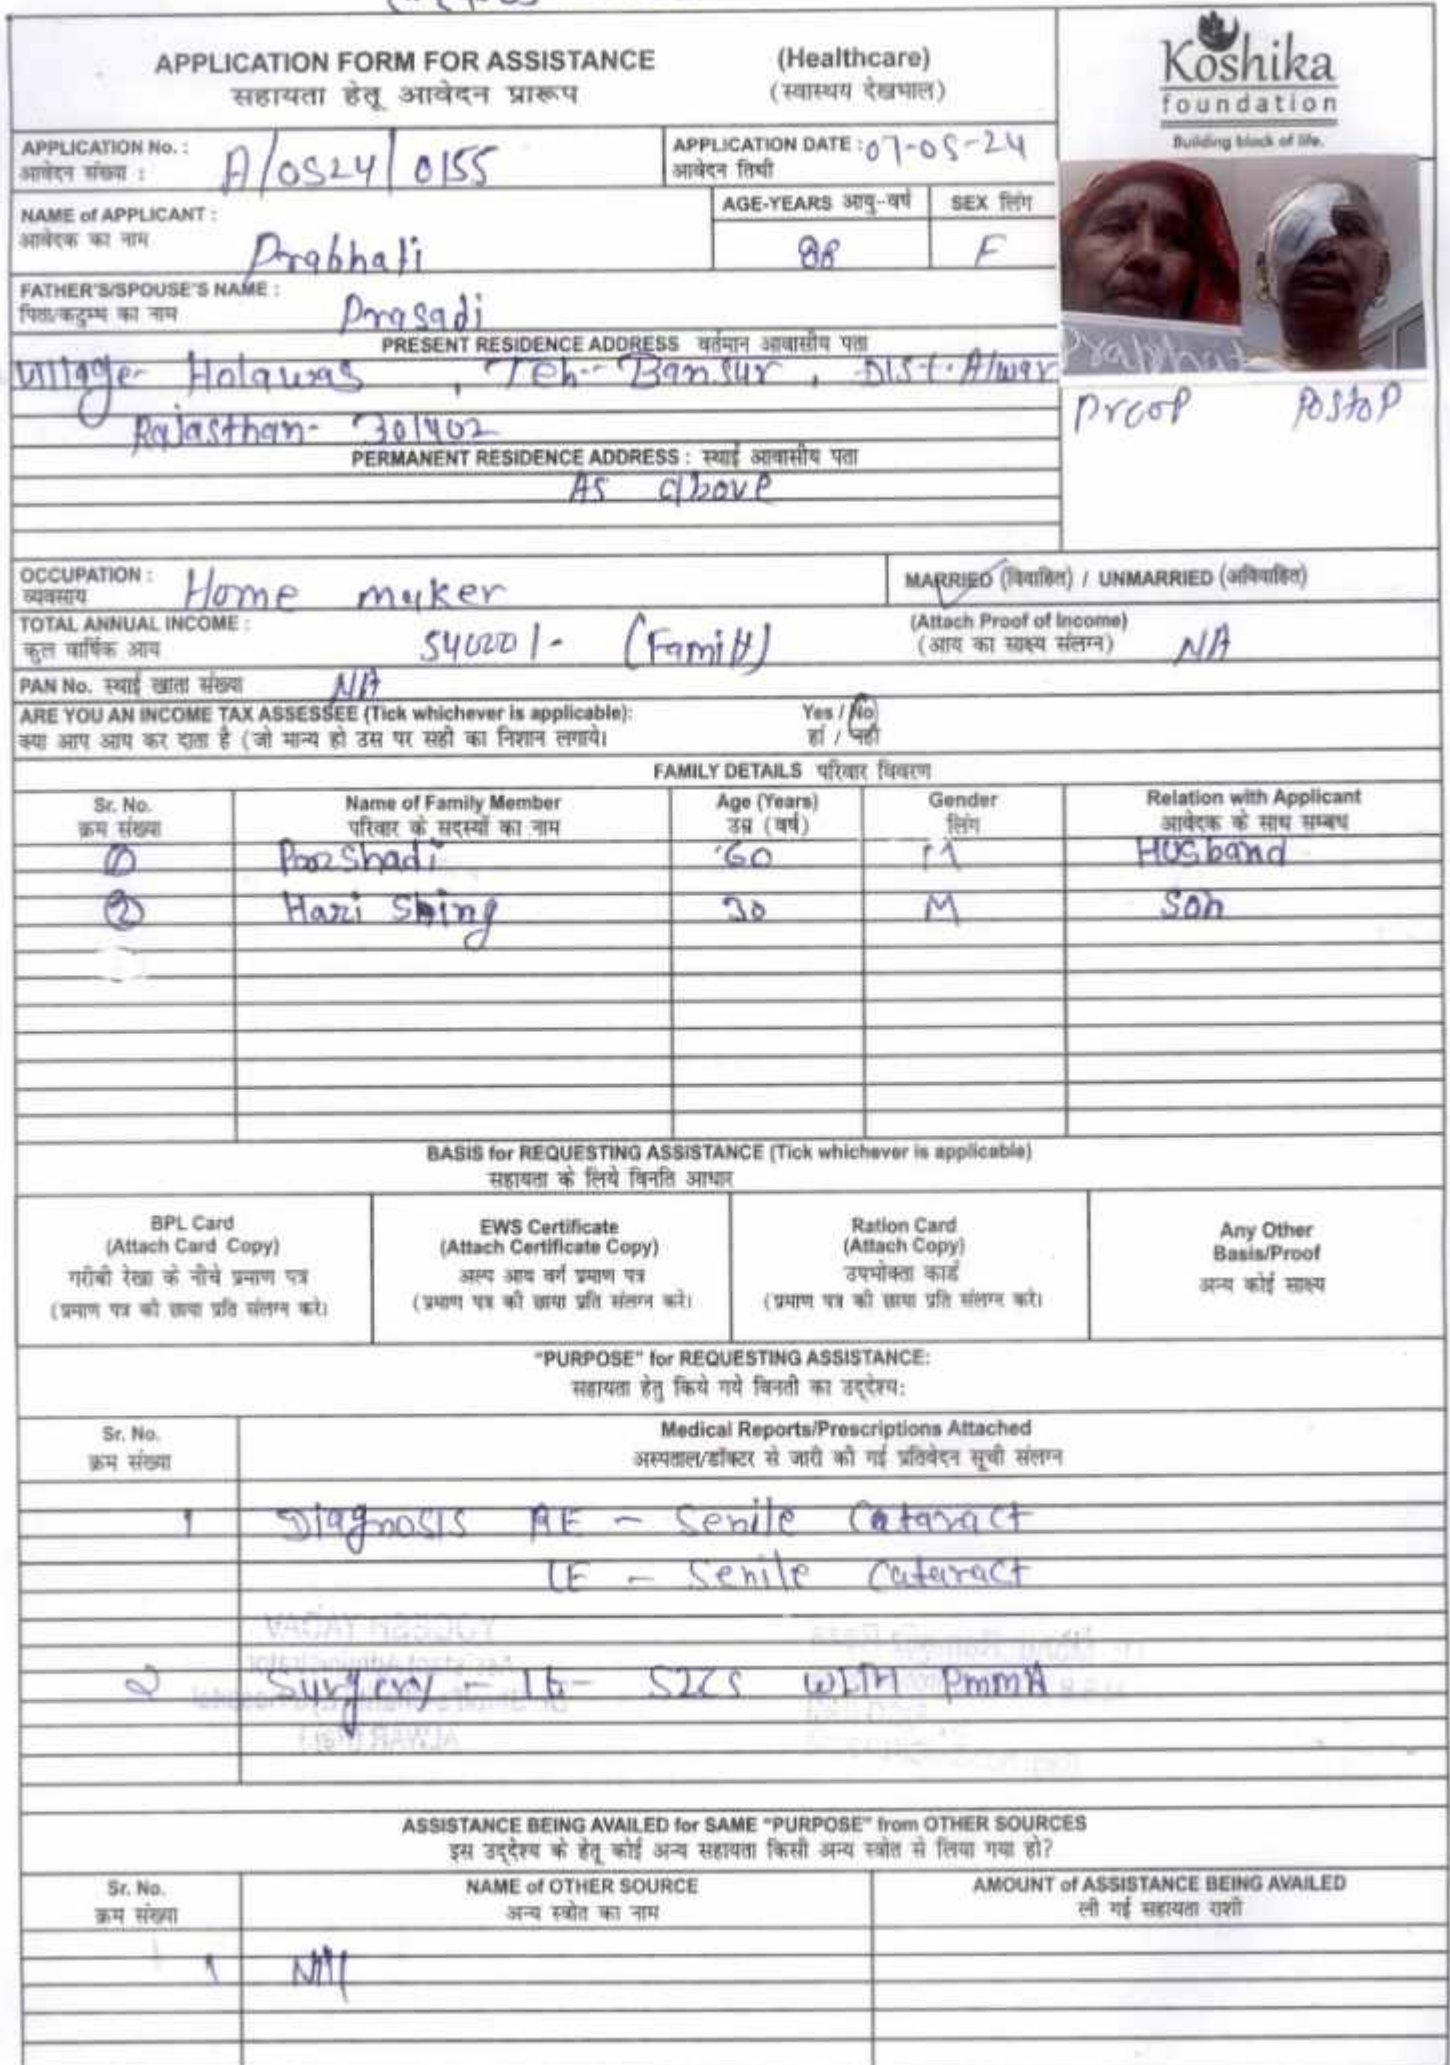 APPLICATION FORM FOR ASSISTANCE (Healthcare)
सहायता हेतू आवेदन प्रारूप (स्वास्थय देखभाल)
Koshika
foundation
Building block of life.
APPLICATION No. : A/0524/0155 APPLICATION DATE : 07-05-24
आवेदन संख्या : आवेदन तिथी
NAME of APPLICANT : AGE-YEARS आयु-वर्ष SEX लिंग
आवेदक का नाम Prabhati F
FATHER'S/SPOUSE'S NAME :
पिता/कटुम्ब का नाम Prasadi
PRESENT RESIDENCE ADDRESS वर्तमान आवासीय पता
Village- Holawas , Teh-- Bansur , Dist. Alwar
Rajasthan- 301402
Prabhati
Preop Postop
PERMANENT RESIDENCE ADDRESS : स्थाई आवासीय पता
As above
OCCUPATION : Home maker MARRIED (विवाहित) / UNMARRIED (अविवाहित)
व्यवसाय
TOTAL ANNUAL INCOME : (Attach Proof of Income)
कुल वार्षिक आय /- (Family) (आय का साक्ष्य संलग्न) NA
PAN No. स्थाई खाता संख्या NA
ARE YOU AN INCOME TAX ASSESSEE (Tick whichever is applicable): Yes / No
क्या आप आय कर दाता है (जो मान्य हो उस पर सही का निशान लगाये। हां / नहीं
FAMILY DETAILS परिवार विवरण
Sr. No. Name of Family Member Age (Years) Gender Relation with Applicant
क्रम संख्या परिवार के सदस्यों का नाम उम्र (वर्ष) लिंग आवेदक के साथ सम्बध
1 60 M Husband
2 Hari Shing 30 M Son
BASIS for REQUESTING ASSISTANCE (Tick whichever is applicable)
सहायता के लिये विनति आधार
BPL Card
(Attach Card Copy)
गरीबी रेखा के नीचे प्रमाण पत्र
(प्रमाण पत्र की छाया प्रति संलग्न करे।
EWS Certificate
(Attach Certificate Copy)
अल्प आय वर्ग प्रमाण पत्र
(प्रमाण पत्र की छाया प्रति संलग्न करे।
Ration Card
(Attach Copy)
उपभोक्ता कार्ड
(प्रमाण पत्र की छाया प्रति संलग्न करे।
Any Other
Basis/Proof
अन्य कोई साक्ष्य
"PURPOSE" for REQUESTING ASSISTANCE:
सहायता हेतु किये गये विनती का उद्देश्य:
Sr. No. Medical Reports/Prescriptions Attached
क्रम संख्या अस्पताल/डॉक्टर से जारी की गई प्रतिवेदन सूची संलग्न
1 Diagnosis RE - Senile Cataract
LE - Senile Cataract
2 Surgery - SICS WITH PMMA
ASSISTANCE BEING AVAILED for SAME "PURPOSE" from OTHER SOURCES
इस उद्देश्य के हेतू कोई अन्य सहायता किसी अन्य स्त्रोत से लिया गया हो?
Sr. No. NAME of OTHER SOURCE AMOUNT of ASSISTANCE BEING AVAILED
क्रम संख्या अन्य स्त्रोत का नाम ली गई सहायता राशी
1 Nill